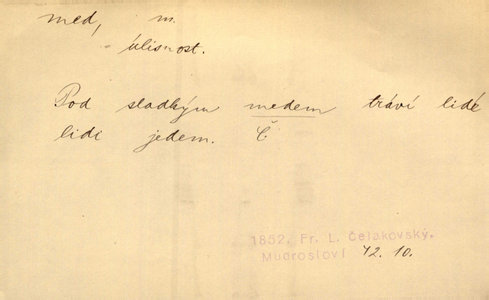 med, m.
úlisnost.
Pod sladkým medem tráví lidé
lidi jedem. Č
1852, Fr. L. Čelakovský,
Mudrosloví 42. 10.